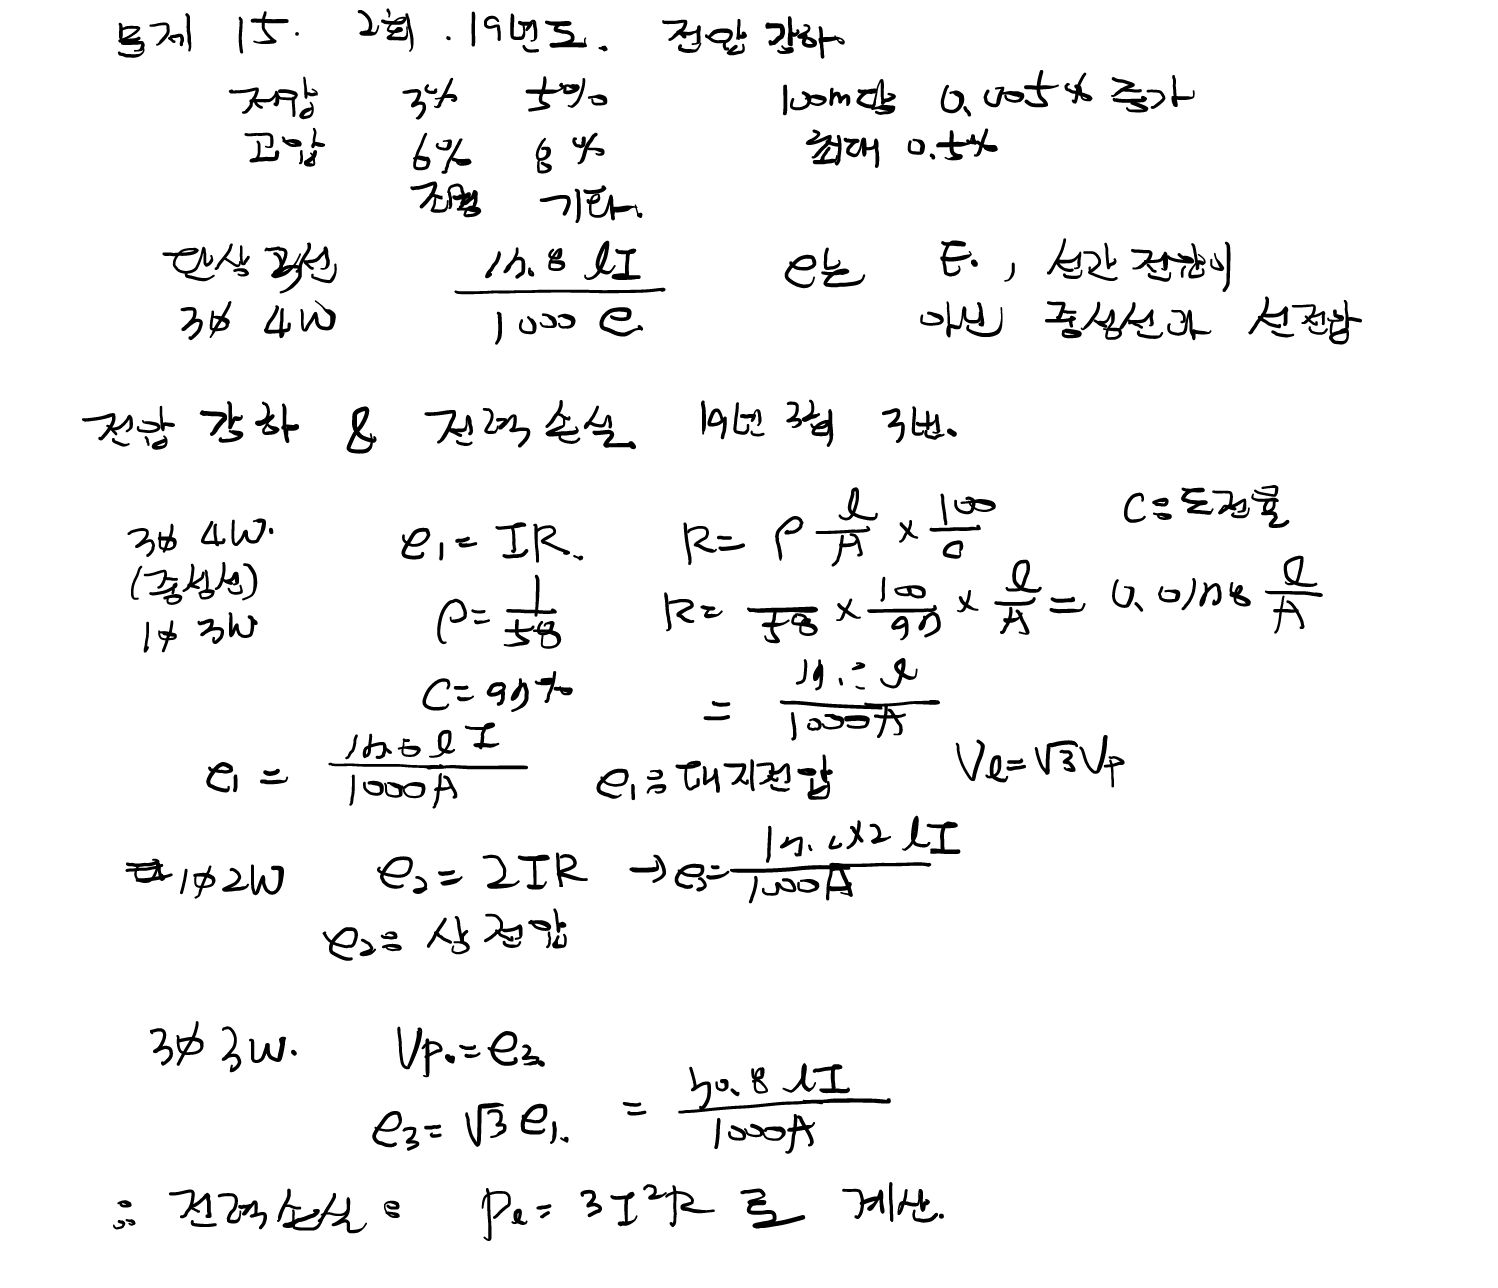 문제 15. 2회. 19년도. 전압 강하.
저압 3% 5% 100m당 0.005% 증가
고압 6% 8% 최대 0.5%
조명 기타.
단상 2선 17.8 lI / 1000 e e는 E., 선간 전압이
3ø 4W 아닌 중성선과 선전압
전압 강하 & 전력손실 19년 3회 3번.
3ø 4W. e₁ = IR. R = ρ l/A × 100/C C는 도전률
(중성선)
1ø 3W ρ = 1/58 R = /58 × 100/97 × l/A = 0.0178 l/A
C = 97% = l / 1000A
e₁ = lI / 1000A e₁은 대지전압 Vl = √3 Vp
1ø2W e₂ = 2IR → e₃ = ×2 lI / 1000A
e₂는 상전압
3ø 3W. Vp. = e₃.
e₃ = √3 e₁. = 30.8 lI / 1000A
∴ 전력손실은 Pl = 3I²R 로 계산.